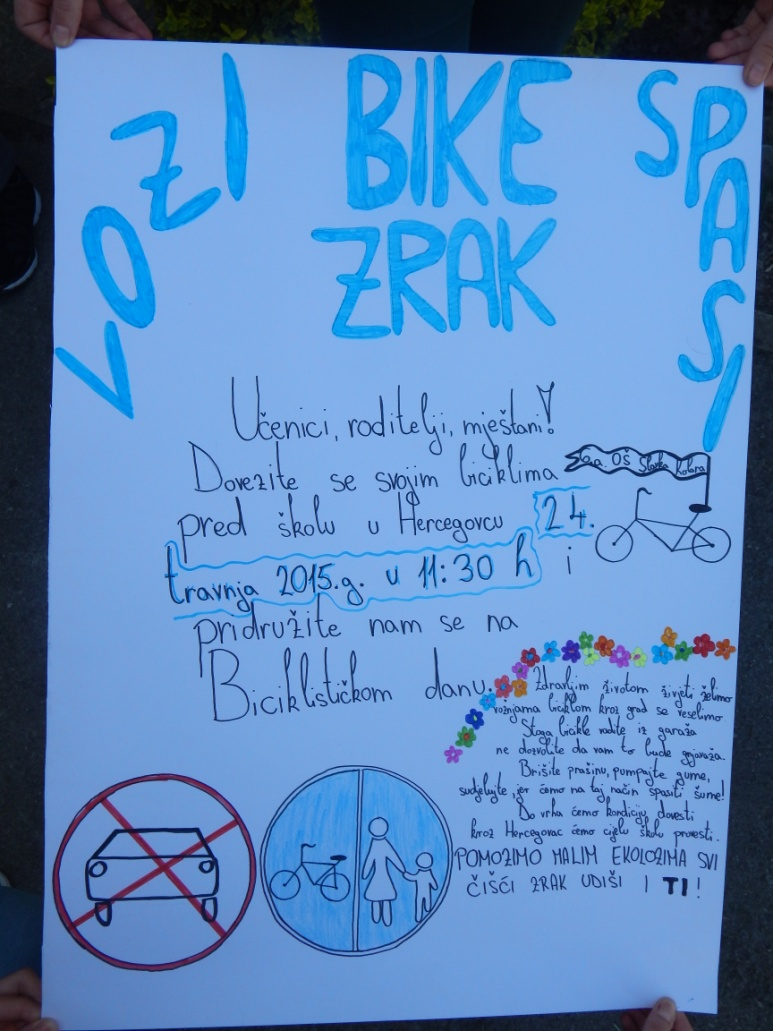 VOZI BIKE SPASI
ZRAK
Učenici, roditelji, mještani!
Dovezite se svojim biciklima
OŠ Slavka Kolara
pred školu u Hercegovcu 24.
travnja 2015.g. u 11:30 h i
pridružite nam se na
Biciklističkom danu.
Zdravljim životom živjeti želimo
vožnjama biciklom kroz grad se veselimo
Stoga bicikle vadite iz garaža
ne dozvolite da vam to bude gnjavaža.
Brišite prašinu, pumpajte gume,
sudjelujte, jer ćemo na taj način spasiti šume!
Do vrha ćemo kondiciju dovesti
kroz Hercegovac ćemo cijelu školu provesti.
POMOZIMO MALIM EKOLOZIMA SVI
ČIŠĆI ZRAK UDIŠI I TI!